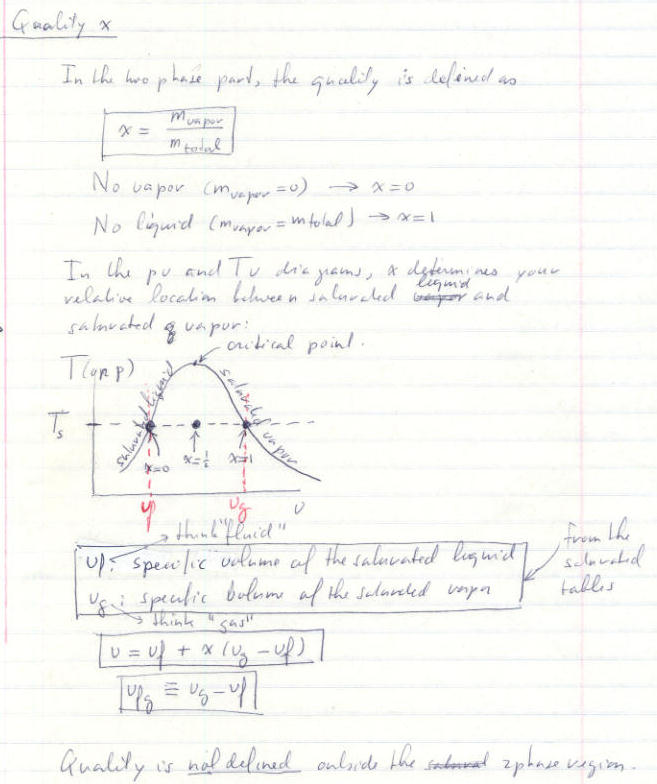 Quality x
In the two phase part, the quality is defined as
x = m vapor / m total
No vapor (m vapor = 0) → x = 0
No liquid (m vapor = m total) → x = 1
In the pv and Tv diagrams, x determines your
relative location between saturated liquid and
saturated vapor:
critical point.
T (or p)
saturated liquid
saturated vapor
Ts
x=0
x=½
x=1
vf
vg
v
think "fluid"
vf: specific volume of the saturated liquid
vg: specific volume of the saturated vapor
from the
saturated
tables
think "gas"
v = vf + x (vg − vf)
vfg ≡ vg − vf
Quality is not defined outside the 2phase region.